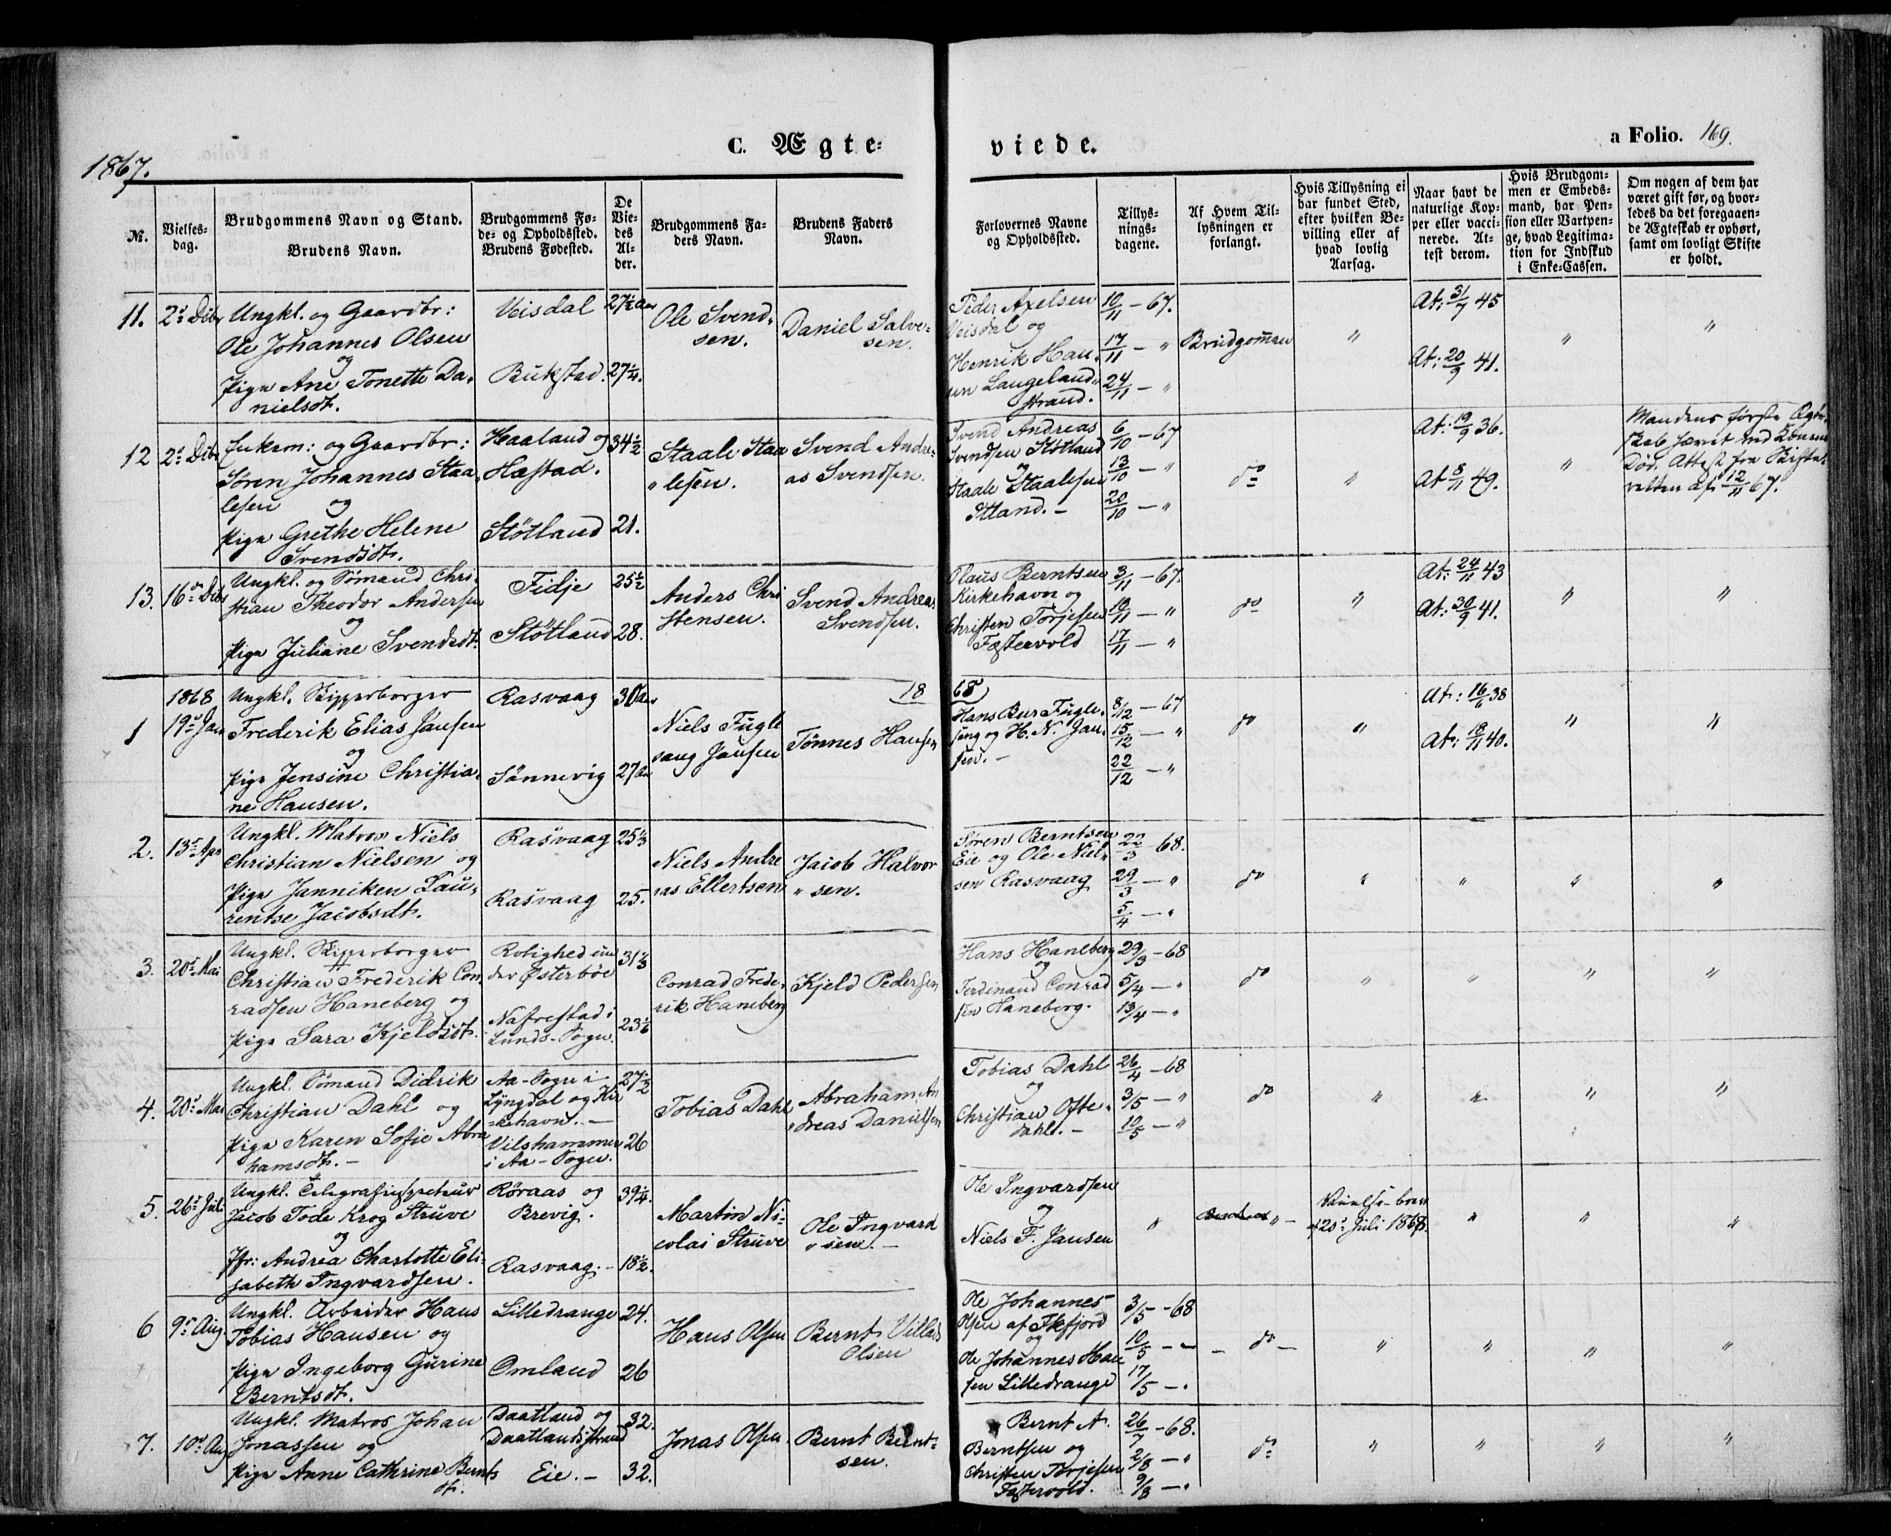 1867.
C. Ægte-
viede.
a Folio. 169.
No.
Vielses-
dag.
Brudgommens Navn og Stand.
Brudens Navn.
Brudgommens Fø-
de- og Opholdssted.
Brudens Fødested.
De
Vie-
des
Al-
der.
Brudgommens Fa-
ders Navn.
Brudens Faders
Navn.
Forlovernes Navne
og Opholdssted.
Tillys-
nings-
dagene.
Af Hvem Til-
lysningen er
forlangt.
Hvis Tillysning ei
har fundet Sted,
efter hvilken Be-
villing eller af
hvad lovlig
Aarsag.
Naar havt de
naturlige Kop-
per eller vacci-
nerede. At-
test derom.
Hvis Brudgom-
men er Embeds-
mand, har Pen-
sion eller Vartpen-
ge, hvad Legitima-
tion for Indskud
i Enke-Cassen.
Om nogen af dem har
været gift før, og hvor-
ledes da det foregaaen-
de Ægteskab er ophørt,
samt om lovligt Skifte
er holdt.
11.
2den Dbr
Ungkl. og Gaardbr:
Ole Johannes Olsen
og
Pige Ane Tonette Da-
nielsdt.
Veisdal
Bukstad.
27½ Aar
27¼.
Ole Svend-
sen.
Daniel Salve-
sen.
Peder Axelsen
Veisdal og
Henrik Han-
sen Langeland-
strand.
10/11 - 67.
17/11 - "
24/11 - "
Brudgommen
"
At: 31/7 45
At: 20/9 41.
"
"
12
2den Dbr
Enkem: og Gaardbr:
Sören Johannes Staa-
lesen
og
Pige Grethe Helene
Svendsdt.
Haaland og
Hæstad.
Støtland
34½
21.
Staale Staa
"lesen.
Svend Andre-
as Svendsen.
Svend Andreas
Svendsen Støtland
og
Staale Staalesen
Itland. -
6/10 - 67
13/10 - "
20/10 - "
do
"
At: 19/9 36.
At 8/11 49.
"
Mandens første Ægte-
skab hævet ved Konens
Død. Attest fra Skifte-
retten af 12/11 67.
13.
16de Dbr
Ungkl. og Sømand Chri-
stian Theodor Andersen
og
Pige Juliane Svendsdt.
Fidje
Støtland
25½
28.
Anders Chri
stensen.
Svend Andreas
Svendsen.
Claus Berntsen
Kirkehavn og
Christen Torjesen
Fæstervold
3/11 - 67.
10/11 - "
17/11 - "
do
"
At: 24/11 43
At: 30/9 41.
"
"
1868
18
68
1
19de Jan
Ungkl. Skipperborger
Frederik Elias Jansen
og
Pige Jensine Christia-
ne Hansen.
Rasvaag
Sønnevig
30 Aar
27 Aar
Niels Fugle
sang Jansen
Tønnes Hansen
Hans Bur Fugle-
sang og H. N. Jan-
sen. -
8/12 - 67
15/12 - "
22/12 - "
do
"
At: 16/6 38
At: 18/11 40.
"
"
2.
13de Apr
Ungkl. Matros Niels
Christian Nielsen og
Pige Janniken Lau-
rentse Jacobsdt.
Rasvaag
Rasvaag
25⅓
25.
Niels Andre
as Ellertsen
Jacob Halvor
" sen.
Søren Berntsen
Eie og Ole Niel-
sen Rasvaag
22/3 - 68.
29/3 - "
5/4 - "
do
"
"
"
"
3.
20de Mai
Ungkl. Skipperborger
Christian Frederik Con-
radsen Haneberg og
Pige Sara Kjeldsdt.
Rolighed un
der Østerbøe
Nafrestad i
Lunds-Sogn.
31⅓
23⅙
Conrad Frede-
rik Haneberg
Kjeld Pedersen
Hans Haneberg
og
Ferdinand Conrad
sen Haneberg.
29/3 - 68
5/4 - "
13/4 - "
do
"
"
"
"
4.
20de Mai
Ungkl. Sømand Didrik
Christian Dahl og
Pige Karen Sofie Abra
hamsdt. -
Aa-Sogn i
Lyngdal og Kir
-kehavn. -
Vilshammer
i Aa-Sogn.
27½
26
Tobias Dahl
Abraham An
dreas Danielsen
Tobias Dahl
og
Christian Ofte-
dahl. -
26/4 - 68
3/5 - "
10/5 - "
do
"
"
"
"
5.
26de Juli
Ungkl. Telegrafinspecteur
Jacob Tode Krog Struve
og
Jfr: Andrea Charlotte Eli-
sabeth Ingvardsen.
Røraas og
Brevig.
Rasvaag. -
39¼.
18½.
Martin Ni-
colai Struve
Ole Ingvard
"sen. -
Ole Ingvardsen
og
Niels F. Jansen
"
" -
20de Juli 1868.
"
"
"
6
9de Aug
Ungkl. Arbeider Hans
Tobias Hansen og
Pige Ingeborg Gurine
Berntsdt.
Lilledrange
Omland
24.
26
Hans Olsen
Bernt Villads
Olsen
Ole Johannes
Olsen af Ikfjord
og
Ole Johannes Han
sen Lilledrange
3/5 - 68
10/5 - -
17/5 - "
- do -
"
"
"
"
7.
10de Aug
Ungkl. Matros Johan
Jonassen og
Pige Anne Cathrine Bernts
dt.
Daatland og
Daatlandsstrand
Eie. -
32.
32.
Jonas Olsen
Bernt Bernt-
sen.
Bernt A.
Berntsen og
Christen Torjesen
Fæstervold.
26/7 - 68.
2/8 - "
9/8 - "
do
"
"
"
"